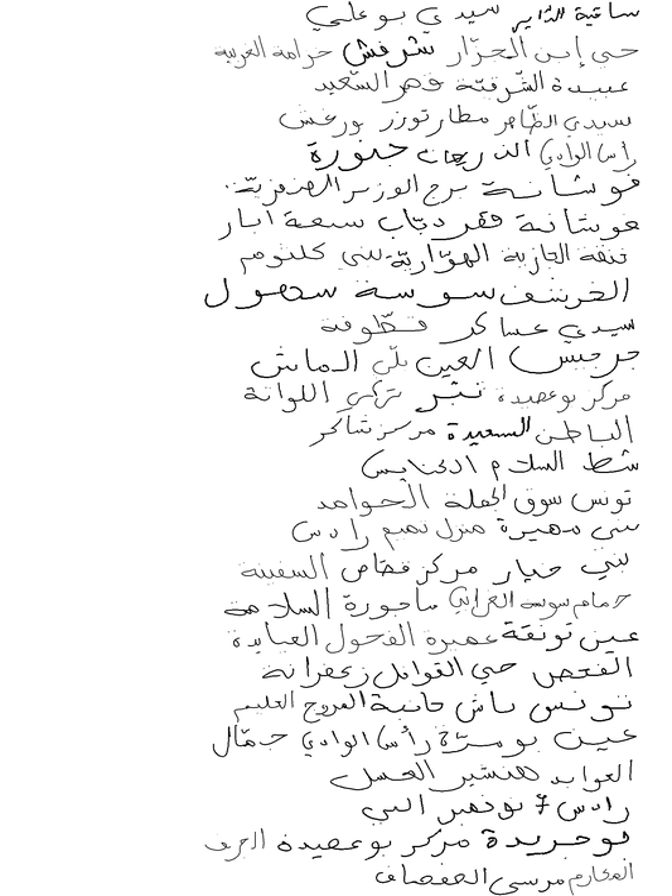 ساقية الدّاير سيدي بو علي
حي إبن الجزّار شرفش حرامة الغربية
عبيدة الشّرفيّة قصر السّعيد
سيدي الظاهر مطار توزر بورغش
رأس الوادي الذريعات جنورة
فوشانة برج الوزير
فوشانة قصر دبّاب سبعة ابار
فنقة الجازية الهوّاريّة بني كلثوم
الخرشف سوسة سهلول
سيدي عساكر قطّوفة
جرجيس العين تلّ الماش
مركز بوعصيدة نشر تركي اللواتة
الباطن السعيدة مركز شاكر
شط السلام
تونس سوق الجملة الحوامد
بني مهيرة منزل تميم رادس
بني خيار مركز قصّاص السفينة
حمام سوسة الغرابي ساجورة السلامة
عين تونقة عميرة الفحول العبايدة
الفحص حي القوافل زعفرانة
تونس باش حانبة المروج العليم
عين بومرّة رأس الوادي جمّال
العوابد هنشير العسل
رادس 7 نوفمبر البي
بوجريدة مركز بوعصيدة الجرف
المكارم مرسى الصفصاف